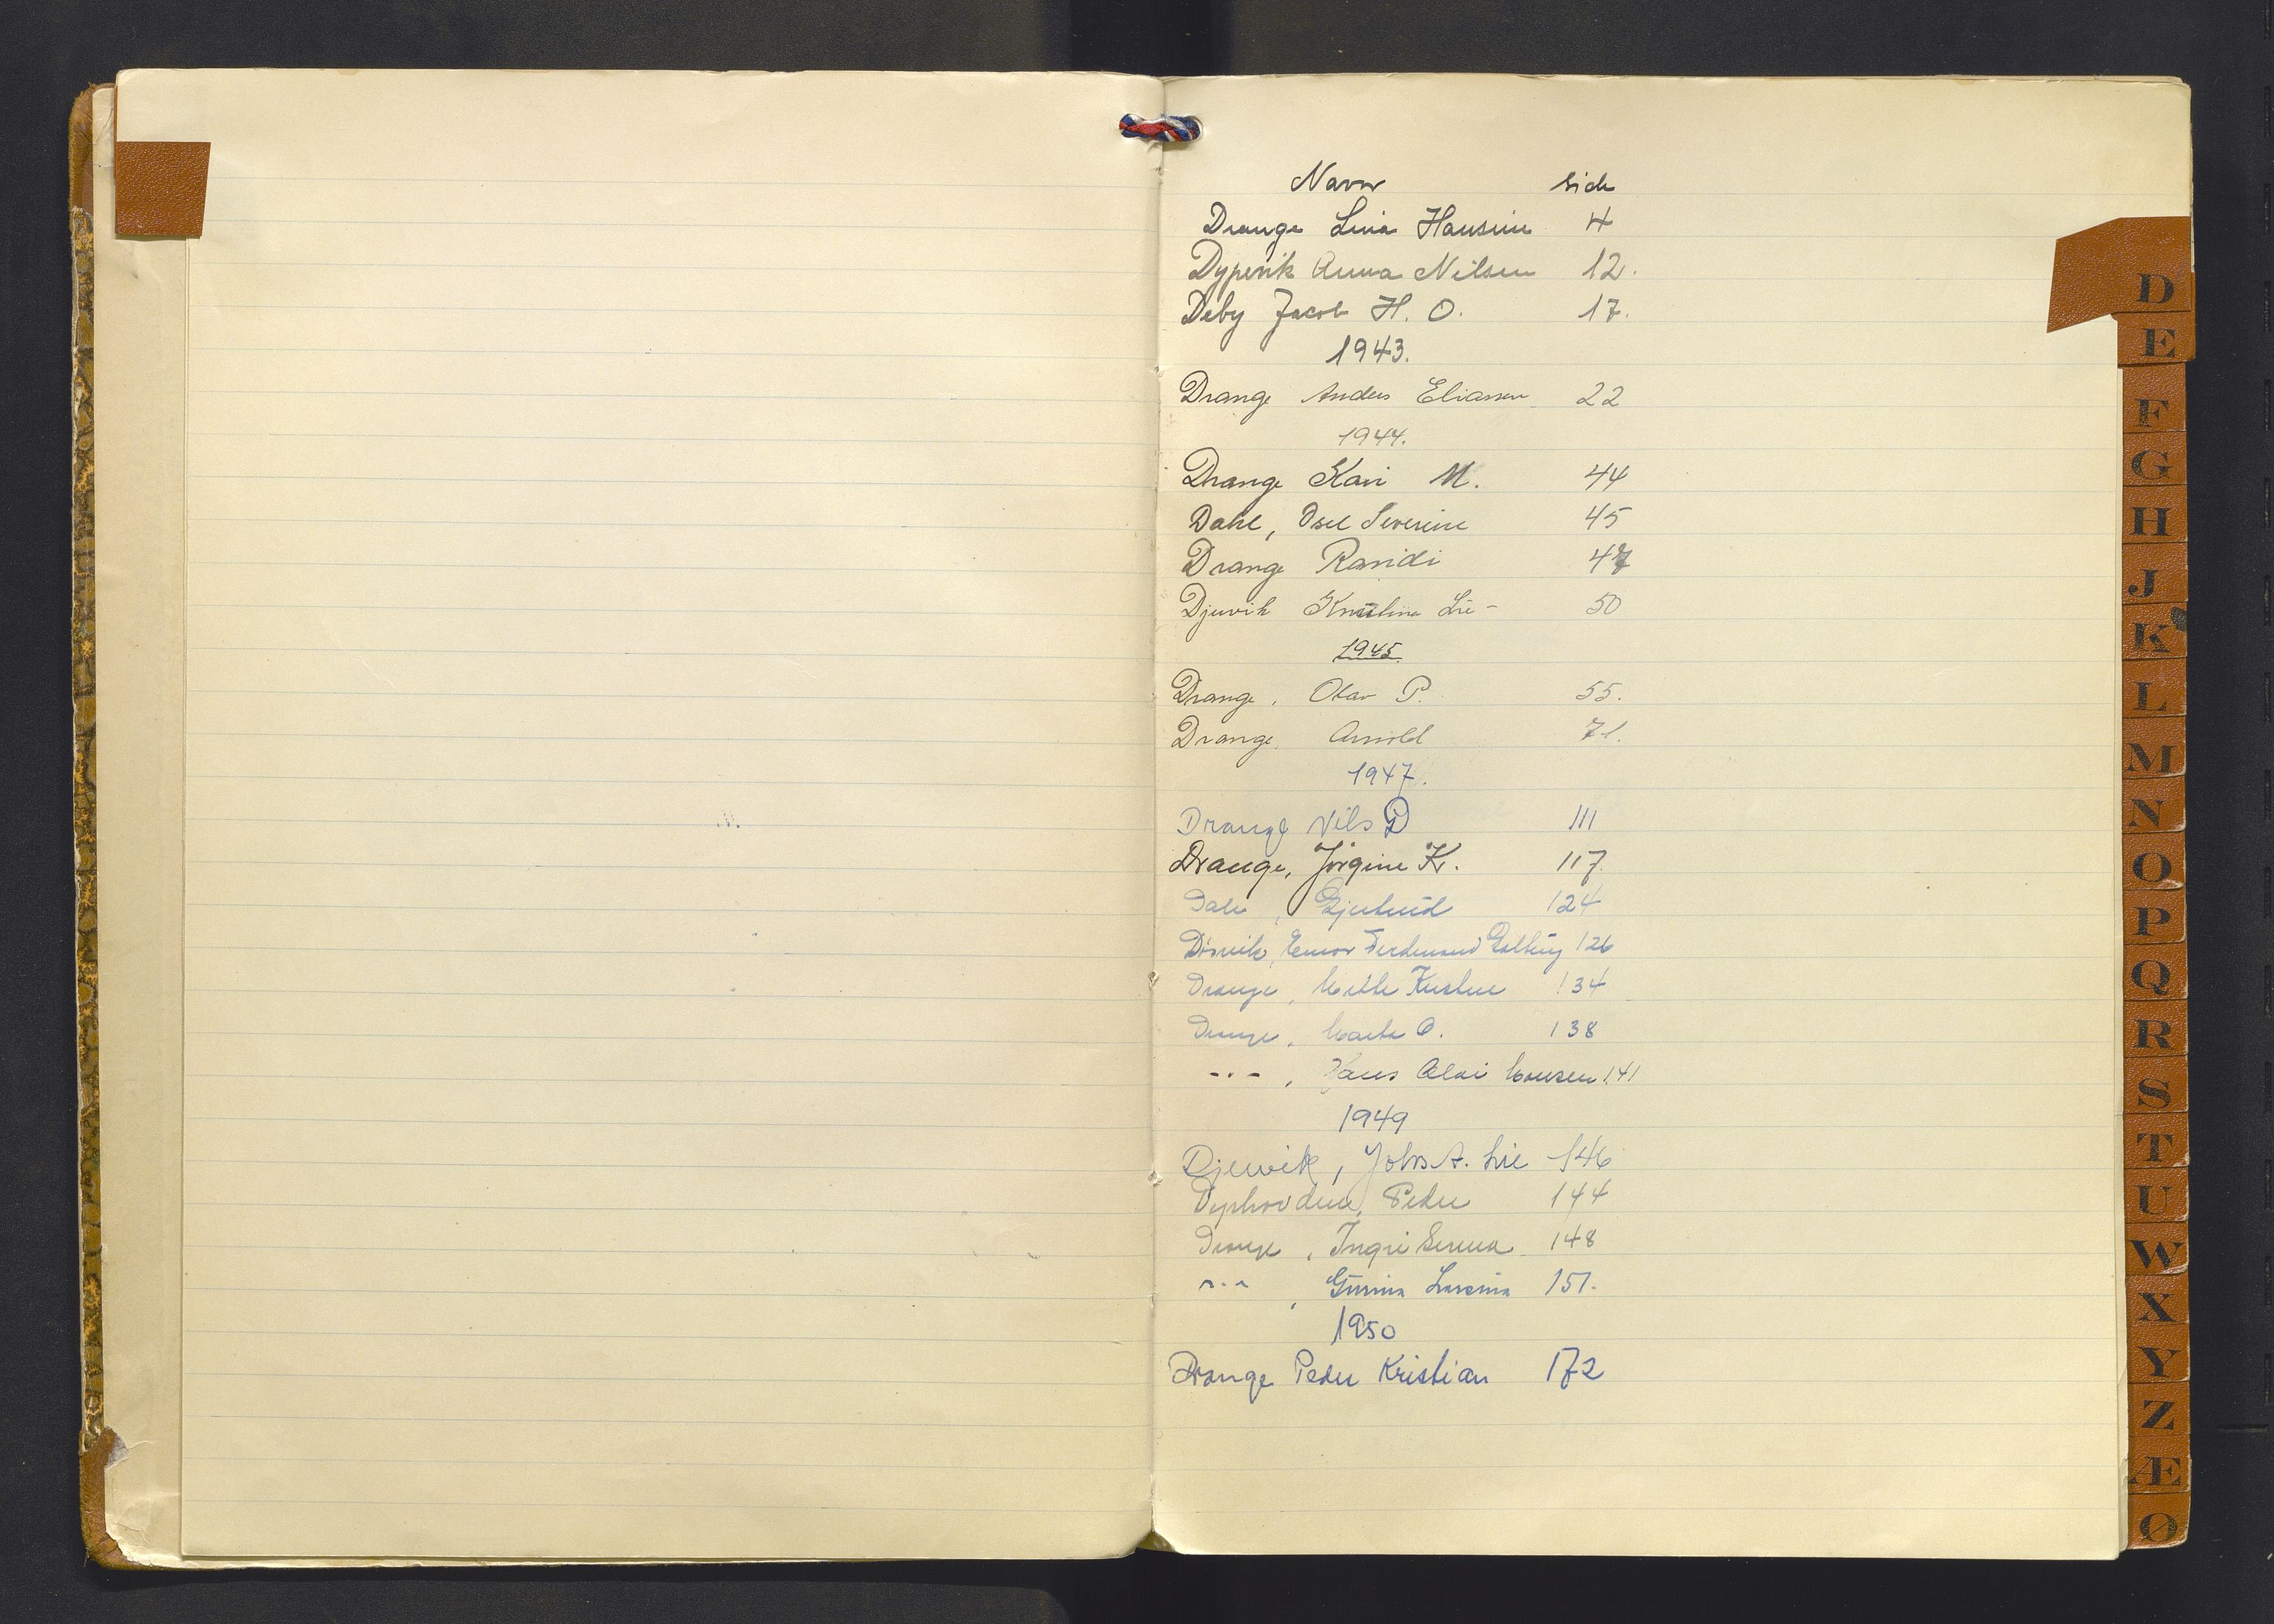 Navn side
Drange Lina Hansine 4
Dypevik Anna Nilsen 12.
Deby Jacob H. O. 17.
1943.
Drange Anders Eliassen 22
1944.
Drange Kari M. 44
Dahl, Severine 45
Drange Randi 47
Djuvik Knutline Lie - 50
1945.
Drange, Olav P. 55.
Drange, Arnold 71.
1947.
Drange Nils D 111
Drange, Jörgine K. 117.
Dale, Gjertrud 124
Ferdinand 126
Drange, Mette Kristine 134
Drange, Marta O. 138
-"-, Hans Olai Monsen 141
1949
Djuvik, Johs A. Lie 146
Dyrhovden, Peder 144
Drange, Ingri Serina 148
-"-, Gurina Larsina 151.
1950
Drange Peder Kristian 172
D
E
F
G
H
J
K
L
M
N
O
P
Q
R
S
T
U
W
X
Y
Z
Æ
Ø